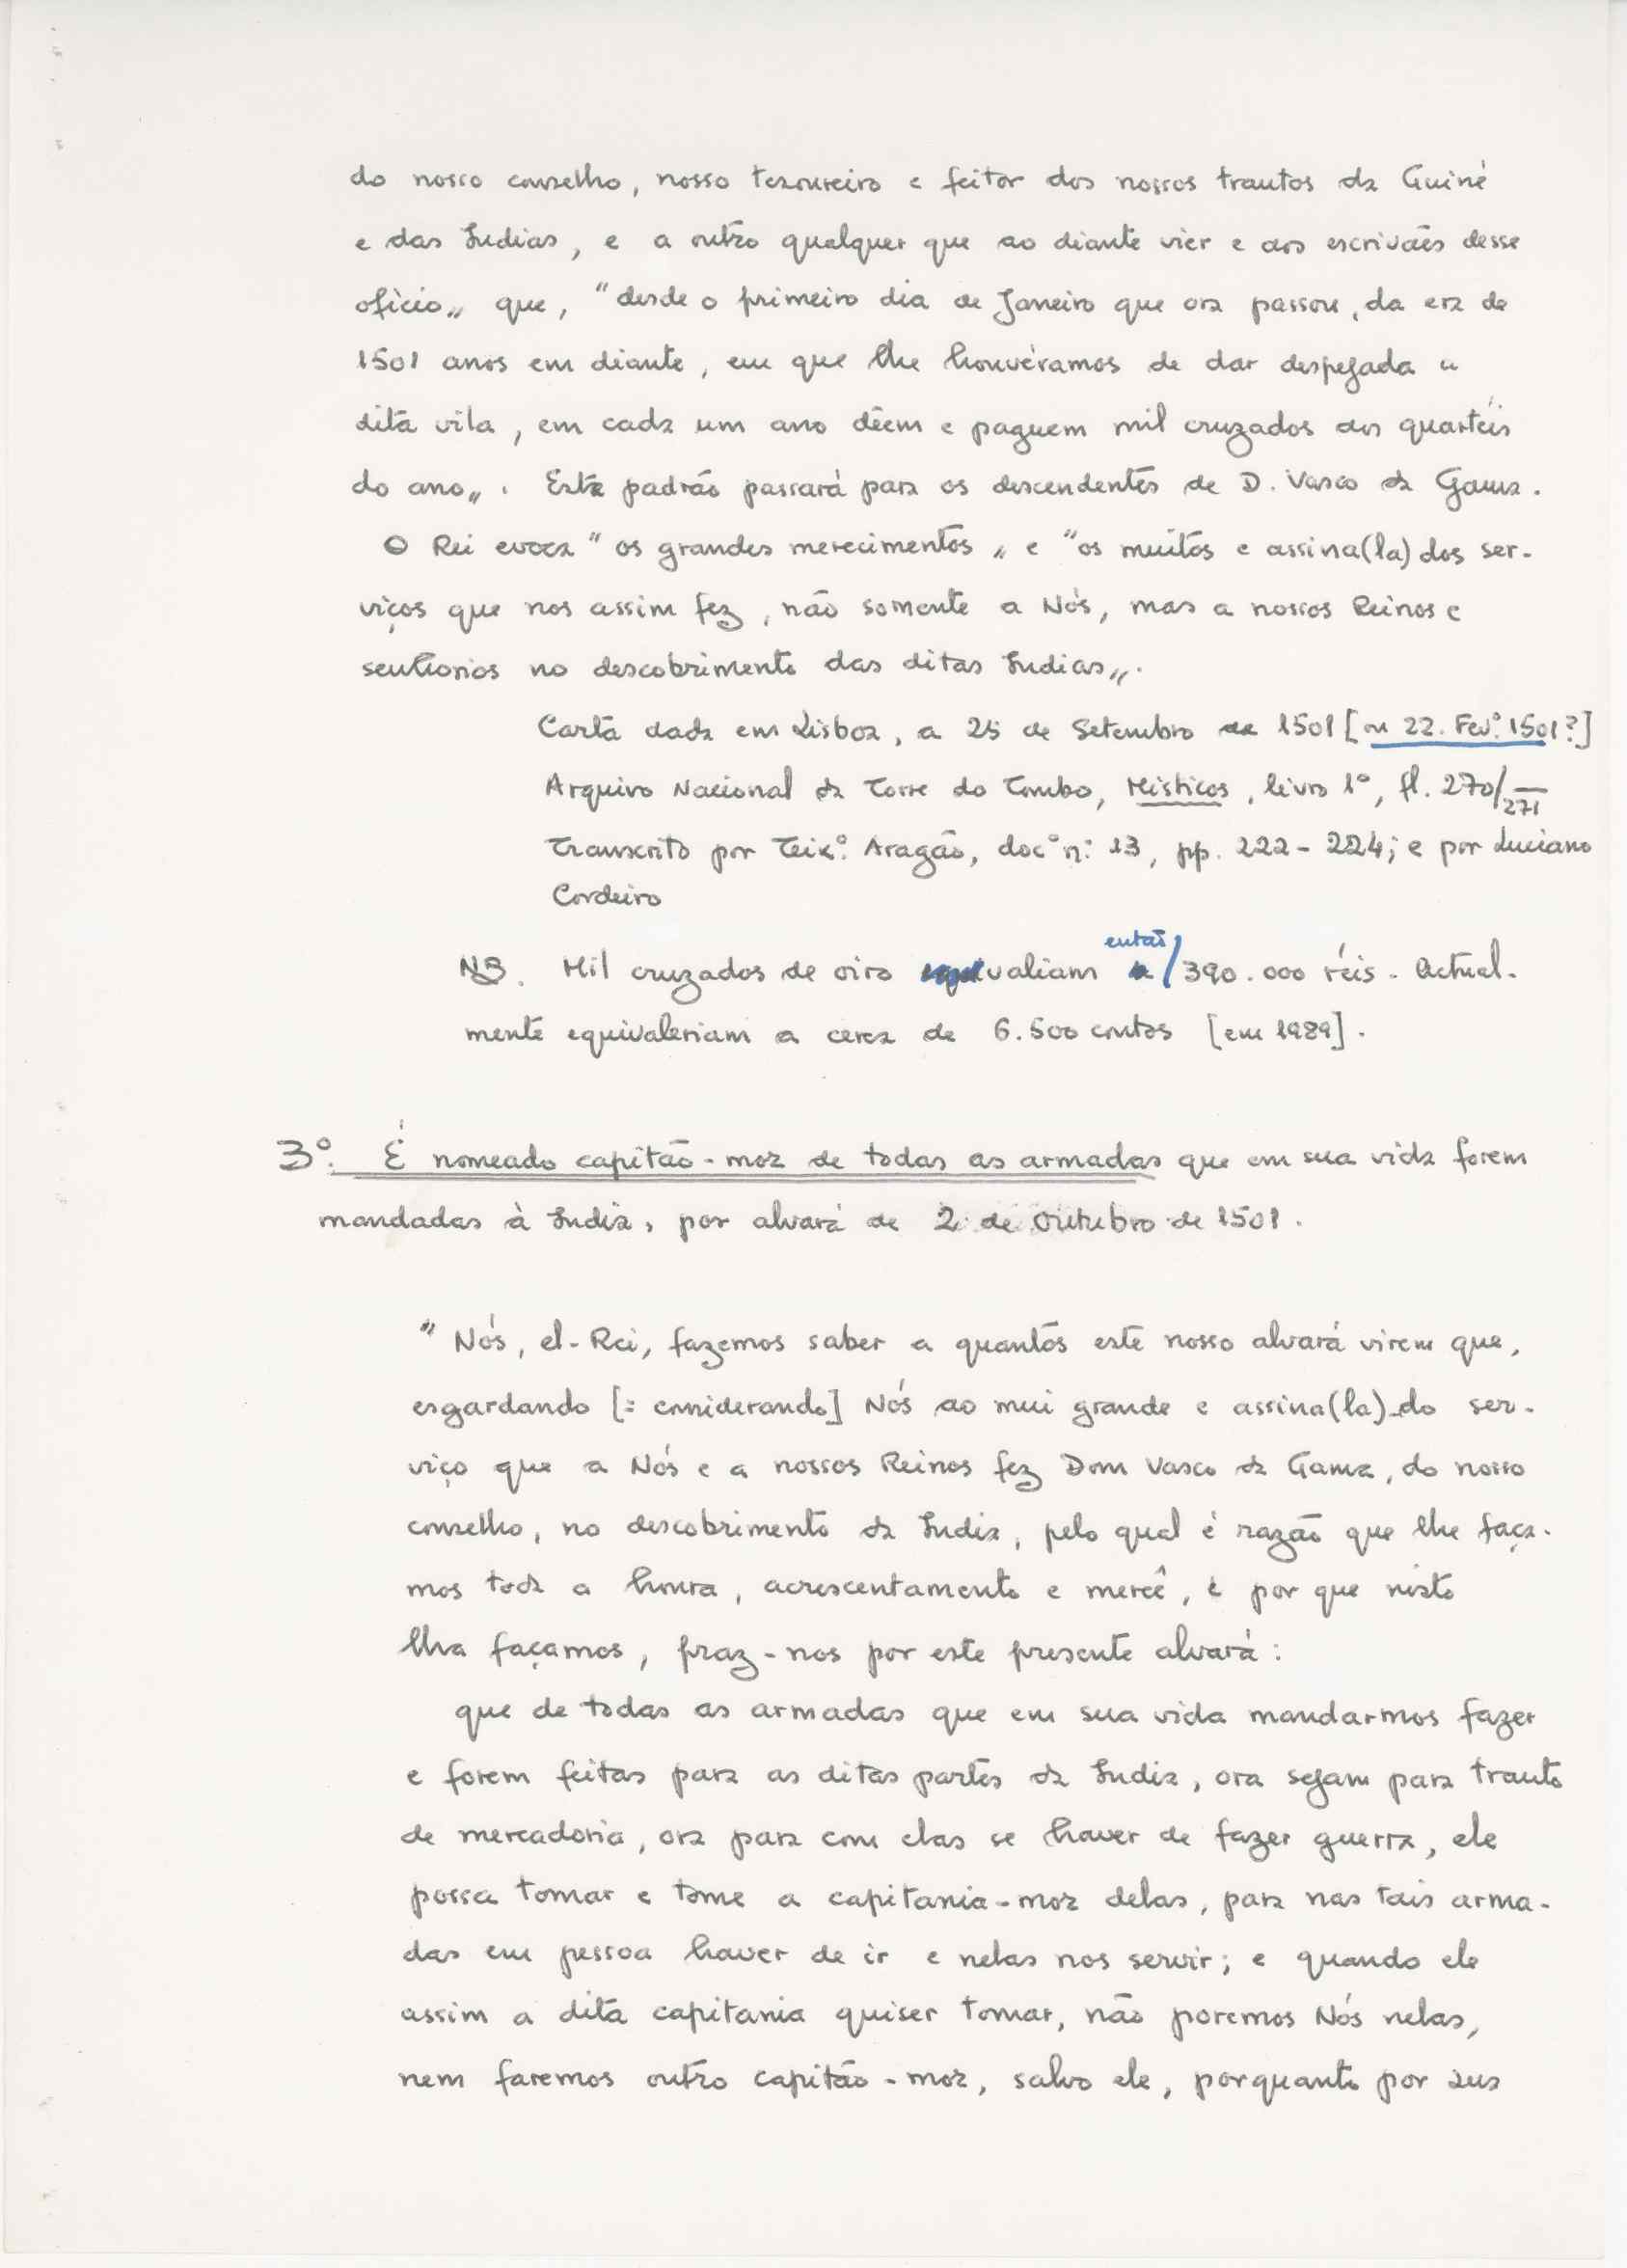 do nosso conselho, nosso tesoureiro e feitor dos nossos trautos da Guiné
e das Indias, e a outro qualquer que ao diante vier e aos escrivães desse
oficio„ que, "desde o primeiro dia de Janeiro que ora passou, da era de
1501 anos em diante, em que lhe houvéramos de dar despejada a
dita vila, em cada um ano dêem e paguem mil cruzados aos quartéis
do ano„. Este padrão passará para os descendentes de D. Vasco da Gama.
O Rei evoca "os grandes merecimentos„ e "os muitos e assina(la)dos ser-
viços que nos assim fez, não somente a Nós, mas a nossos Reinos e
senhorios no descobrimento das ditas Indias„.
Carta dada em Lisboa, a 25 de Setembro de 1501 [ou 22. Fevº. 1501?]
Arquivo Nacional da Torre do Tombo, Misticos, livro 1º, fl. 270/271
Transcrito por Teixº. Aragão, docº nº: 13, pp. 222-224; e por Luciano
Cordeiro
NB. Mil cruzados de oiro valiam então/390.000 réis. Actual-
mente equivaleriam a cerca de 6.500 contos [em 1989].
3º. É nomeado capitão-mor de todas as armadas que em sua vida forem
mandadas à India, por alvará de 2 de Outubro de 1501.
"Nós, el-Rei, fazemos saber a quantos este nosso alvará virem que,
esgardando [= considerando] Nós ao mui grande e assina(la)-do ser-
viço que a Nós e a nossos Reinos fez Dom Vasco da Gama, do nosso
conselho, no descobrimento da India, pelo qual é razão que lhe faça-
mos toda a honra, acrescentamento e mercê, e por que nisto
lha façamos, praz-nos por este presente alvará:
que de todas as armadas que em sua vida mandarmos fazer
e forem feitas para as ditas partes da India, ora sejam para trauto
de mercadoria, ora para com elas se haver de fazer guerra, ele
possa tomar e tome a capitania-mor delas, para nas tais arma-
das em pessoa haver de ir e nelas nos servir; e quando ele
assim a dita capitania quiser tomar, não poremos Nós nelas,
nem faremos outro capitão-mor, salvo ele, porquanto por sua